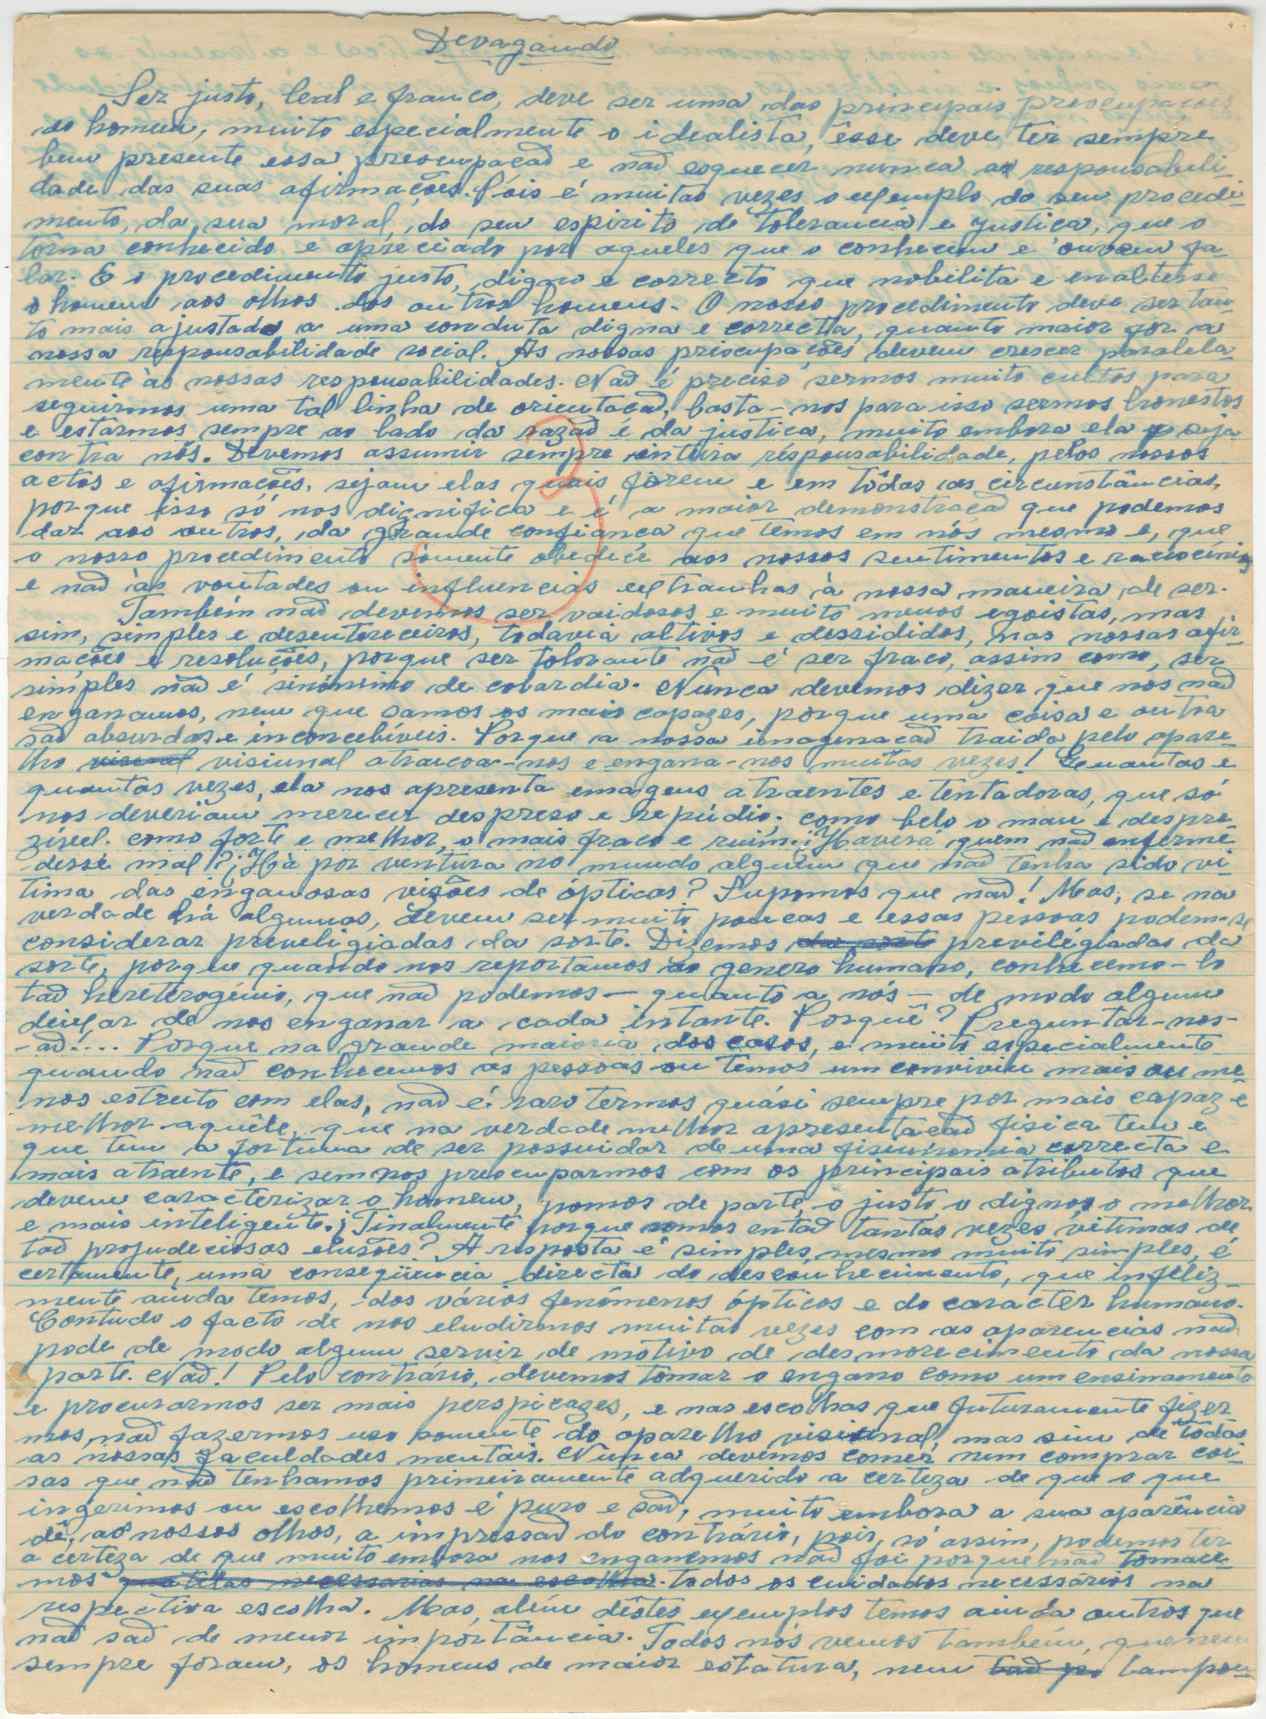 Devagando
Ser justo, leal e franco, deve ser uma das principais preocupações
do homem, muito especialmente o idealista, êsse deve ter sempre
bem presente essa preocupação e não esquecer nunca as responsabili-
dade das suas afirmações. Pois é muitas vezes o exemplo do seu procedi-
mento, da sua moral, do seu espirito de tolerancia e justiça, que o
torna conhecido e apreciado por aqueles que o conhecem e ouvem fa-
lar. E o procedimento justo, digno e correcto que nobilita e enaltense
o homem aos olhos dos outros homens. O nosso procedimento deve ser tan-
to mais ajustado a uma conduta digna e correcta, quanto maior for a
nossa responsabilidade social. As nossas priocupações devem crescer paralela-
mente às nossas responsabilidades. Não é preciso sermos muito cultos para
seguirmos uma tal linha de orientação, basta-nos para isso sermos honestos
e estarmos sempre ao lado da razão e da justiça, muito embora ela seja
contra nós. Devemos assumir sempre entura responsabilidade, pelos nossos
actos e afirmações, sejam elas quais forem e em tôdas as circunstâncias,
porque isso só nos dignifica e é a maior demonstração que podemos
dar aos outros, da grande confiança que temos em nós mesmo e, que
o nosso procedimento sómente obedéce aos nossos sentimentos e raciocínios
e não às vontades ou influencias extranhas à nossa maneira de ser.
Também não devemos ser vaidosos e muito menos egoistas, mas
sim, simples e desentereceiros, todavia altivos e dessididos, nas nossas afir-
mações e resoluções, porque ser tolerante não é ser fraco, assim como, ser
simples não é sinónimo de covardia. Nùnca devemos dizer que nos não
enganamos, nem que samos os mais capazes, porque uma coisa e outra
são absurdas e inconcebíveis. Porque a nossa imaginação traida pelo apare-
lho visiunal atraiçoa-nos e engana-nos muitas vezes! Quantas e
quantas vezes, ela nos apresenta emagens atraentes e tentadoras, que só
nos deveriam merecer despreso e repúdio; como belo o mau e despre-
zível. como forte e melhor, o mais fraco e ruim; ¡Haverá quem não enferme
desse mal? ¡Há por ventura no mundo alguém que não tenha sido vi-
tima das enganosas visões de ópticas? Supomos que não! Mas, se na
verdade há algumas, devem ser muito poucas e essas pessoas podem-se
considerar preveligiadas da sorte. Dizemos previlégiadas da
sorte, porque quando nos reportamos ao genero humano, conhecemo-lo
tão hereterogénio, que não podemos — quanto a nós — de modo algum
deixar de nos enganar a cada intante. Porquê? Preguntar-nos-
-ão.... Porque na grande maioria dos casos, e muito especialmente
quando não conhecemos as pessoas ou temos um conviviu mais ou me-
nos estreito com elas, não é raro termos quási sempre por mais capaz e
melhor aquêle, que na verdade melhor apresentação fisica tem e
que tem a fortuna de ser possuidar de uma fisiunomia correcta e
mais atraente, e sem nos preocuparmos com os principais atributos que
devem caracterizar o homem, pomos de parte, o justo o digno o melhor
e mais inteligente. ¡Finalmente porque somos então tantas vezes vitimas de
tão projudeciosas elusões? A resposta é simples, mesmo muito simples, é
certamente, uma conseqüencia directa do desconhecimento, que infeliz-
mente ainda temos, dos vários fenómenos ópticos e do caracter humano.
Contudo o facto de nos eludirmos muitas vezes com as aparencias não
pode de modo algum servir de motivo de desmorecimento da nossa
parte. Não! Pelo contrário, devemos tomar o engano como um ensinamento
e procurarmos ser mais perspicazes, e nas escolhas que futuramente fizer
mos, não fazermos uso somente do aparelho visiunal, mas sim de tôdas
as nossas faculdades mentais. Nùnca devemos comer nem comprar coi-
sas que não tenhamos primeiramente adquerido a certeza de que o que
ingerimos ou escolhemos é puro e são, muito embora a sua aparência
dê, aos nossos olhos, a impressão do contrário, pois, só assim, podemos ter
a certeza de que muito embora nos enganemos não foi porque não tomace-
mos todos os cuidados necessários na
respectiva escolha. Mas, além dêstes exemplos temos ainda outros que
não são de menor importância. Todos nós vemos também, que nem
sempre foram, os homens de maior estatura, nem tampou-